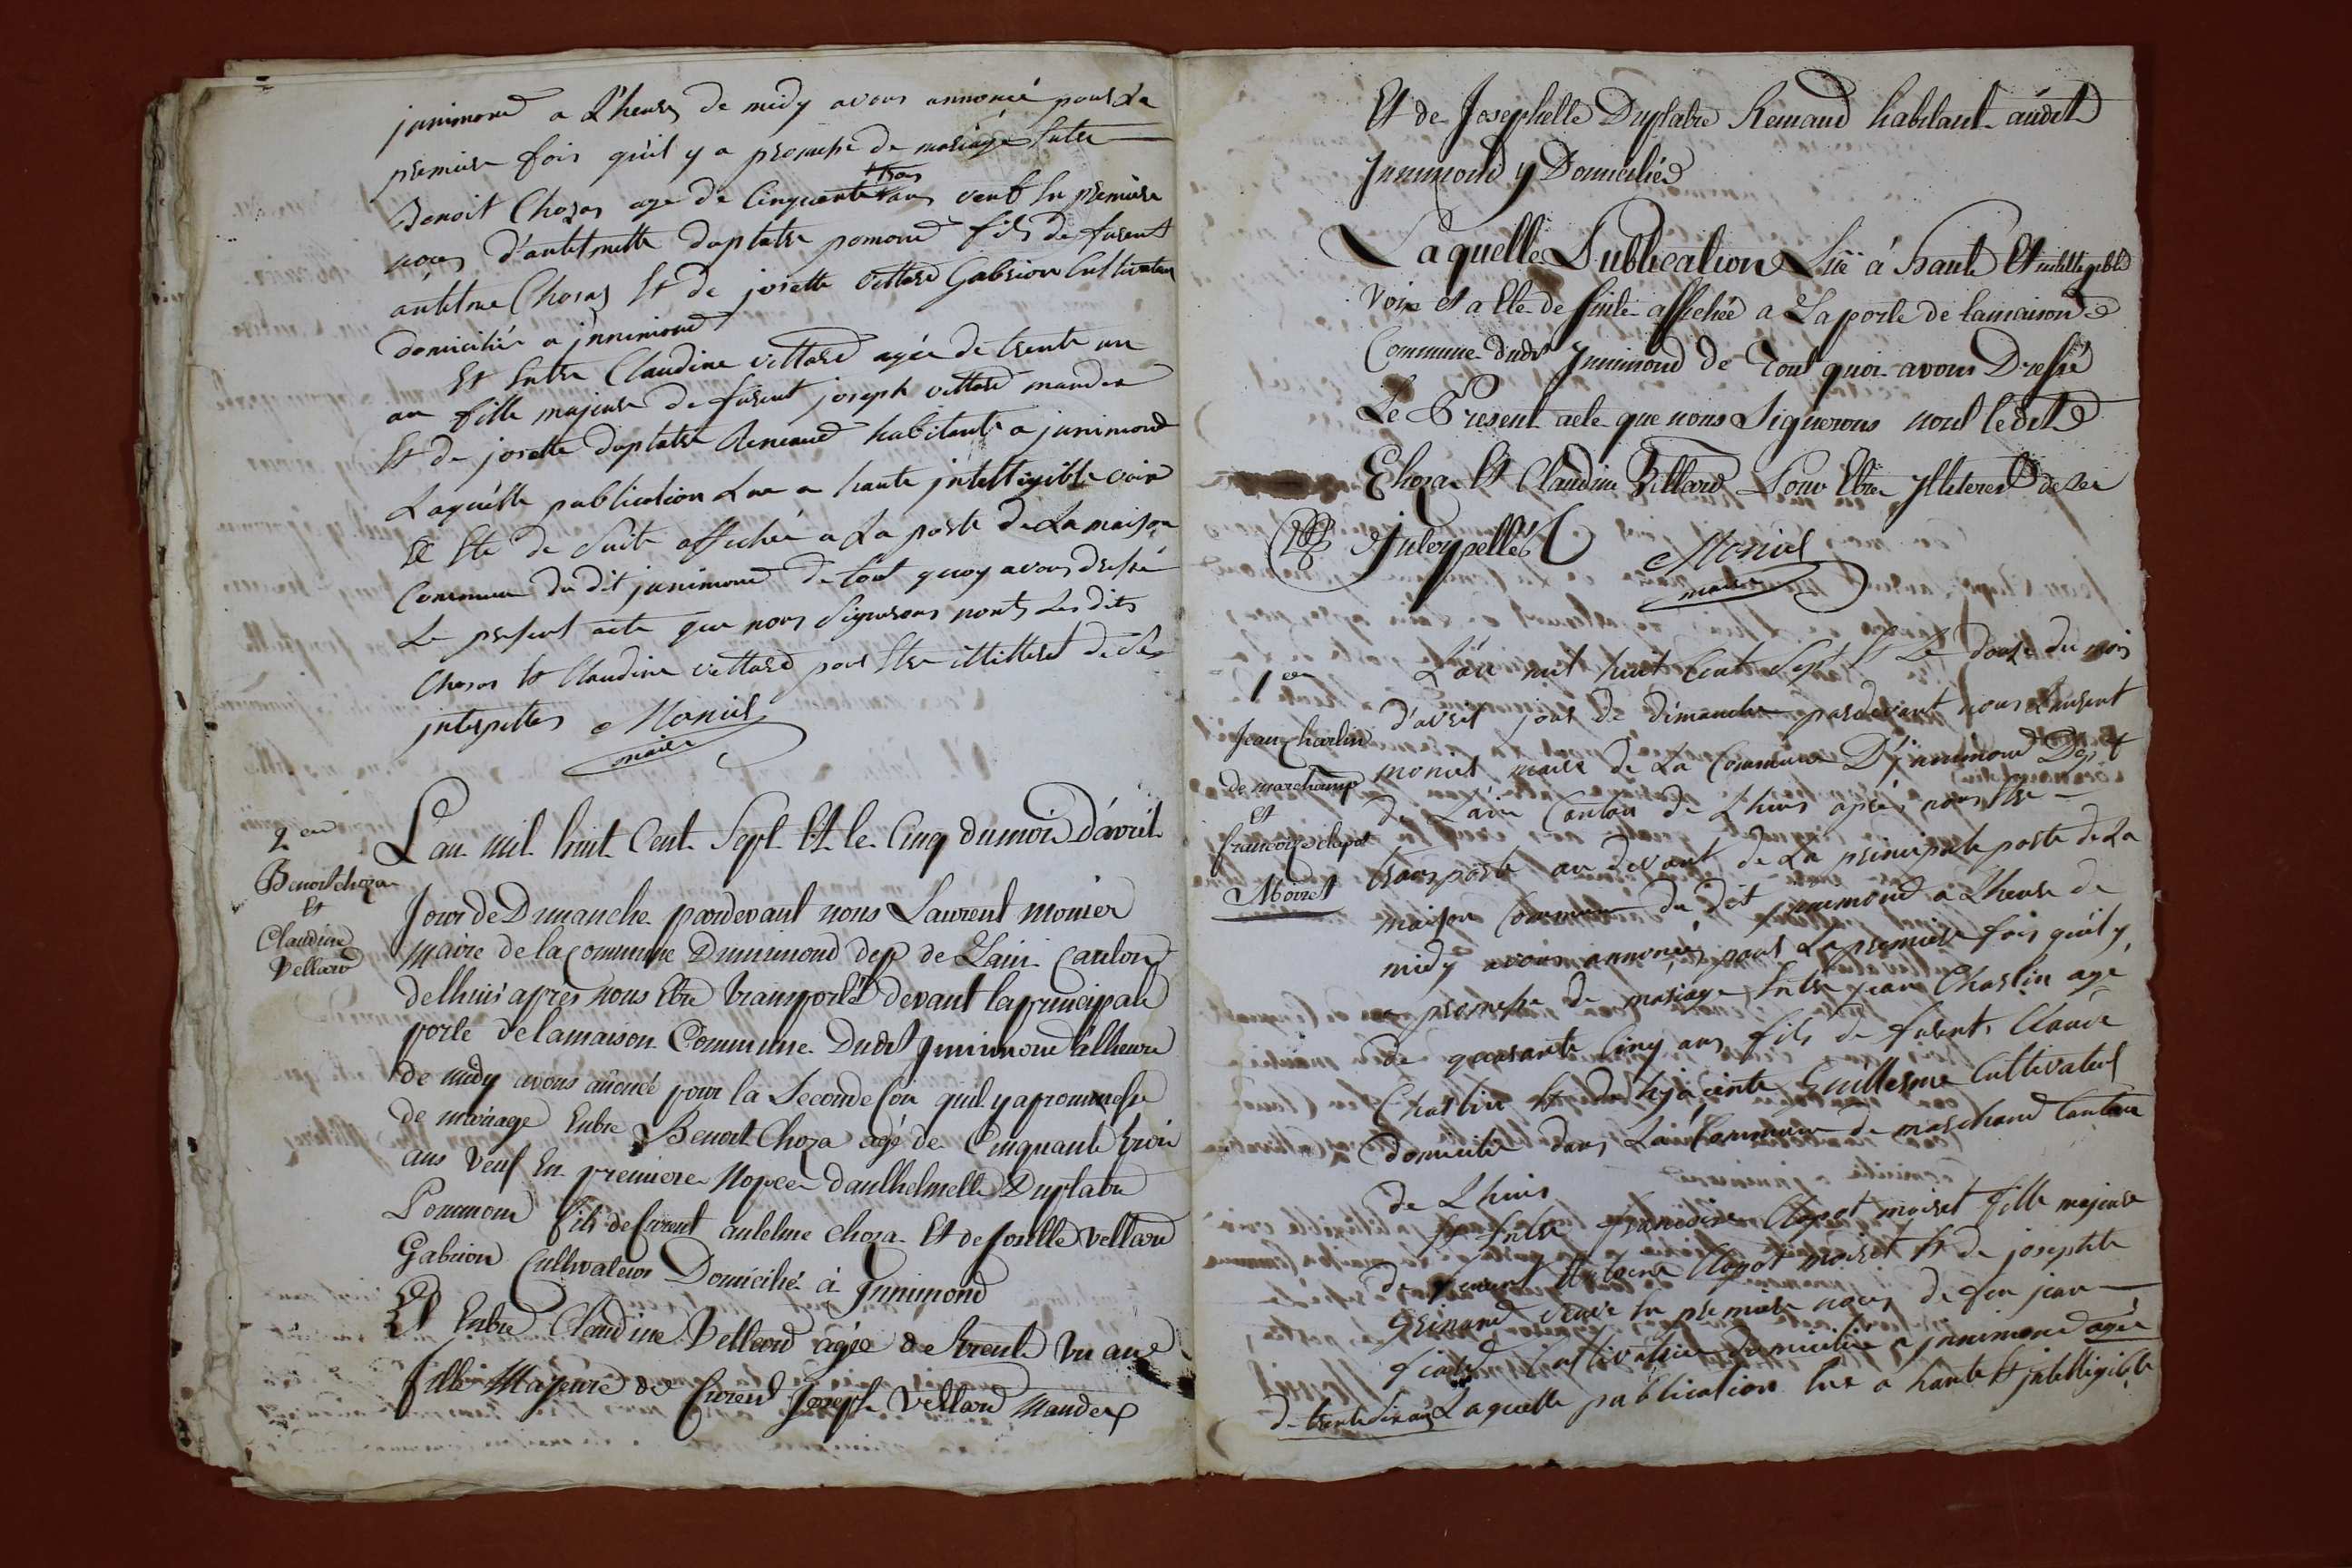 junimond a L'heure de midy avons annoncé pour La
premiere fois qu'il y a promesse de mariage Entre
Benoit Chozas age de Cinquante trois ans veuf En premiere
noces d'antelmette duplatre pomond fils de furent
antelme Chozas Et de josette vettard Gabrion Cultivateur
domicilié a jnnimond
Et Entre Claudine vettard agée de trente un
an fille majeure de furent joseph vettard mander
Et de josette duplatre Renaud habitante a junimond
Laquelle publication Lue a haute jntelligible voix
Et Ete de Suite affichée a La porte de La maison
Commune du dit junimond de tout quoy avons dressé
Le present acte que nous Signerons nonts Les dits
Chozas Et Claudine vettard pour Etre illitteret de Ses
interpettes Monier
maire
2em
Benoit choza
Et
Claudine
Vellard
L'an mil huit Cent Sept Et le Cinq du mois D'avril
Jour de Dimanche pardevant nous Laurent monier
Maire de la Commune Dinnimond dep de Lain Canton
delhuis après nous Etre transporté devant la principale
porte de lamaison Commune Dudt Jnnimond a lheure
de midy avons anoncé pour la Seconde fois quil y apromesse
de mariage Entre Benoit Choza agé de Cinquante trois
ans Veuf En premiere Nopces danthelmette Duplatre
Pommond fils de furent antelme choza Et de Josette Vellard
Gabrion Cultivateur Domicilié à Jnnimond
Et Entre Claudine Vellard agée de trente un ans
fille Majeure de furent Joseph Vellard Mander
Et de Josephelle Duplatre Renaud habitant audit
Jnnimond y Domiciliée
Laquelle Publication Luë à haute Et intelligible
Voix Et a Ete de suite affichée a La porte de lamaison
Commune dudt Jnnimond de Tout quoi avons Dressé
Le Present acte que nous Signerons nont ledit
Choza Et Claudine Vellard Pour Etre jlliteret de ce
Interpellés Monier
maire
1er
Jean Charlin
de marchamp
Et
francoise clapot
Moiret
L'an mil huit Cent Sept Et Le douze du mois
d'avril jour de dimanche pardevant nous Laurent
monier maire de La Commune D'jnnimond Dept
de L'ain Canton de Lhuis après nous Etre
transporté au devant de La principale porte de La
maison Commune du dit junimond a L'heure de
midy avons annoncés pour La premiere fois qu'il y
a promesse de mariage Entre jean Charlin agé
de quarante Cinq ans fils de furent Claude
Charlin Et de hyacinte Guillerme Cultivateur
domicilié dans La Commune de marchand Canton
de Lhuis
Et Entre francoise Clapot moiret fille majeure
de furent Antoine Clapot moiret Et de josephte
Grinand veuve En premiere noces de feu jean
Cultivatrice domiciliée a junimond agée
de trente six ans Laquelle publication lue a haute Et jntelligible